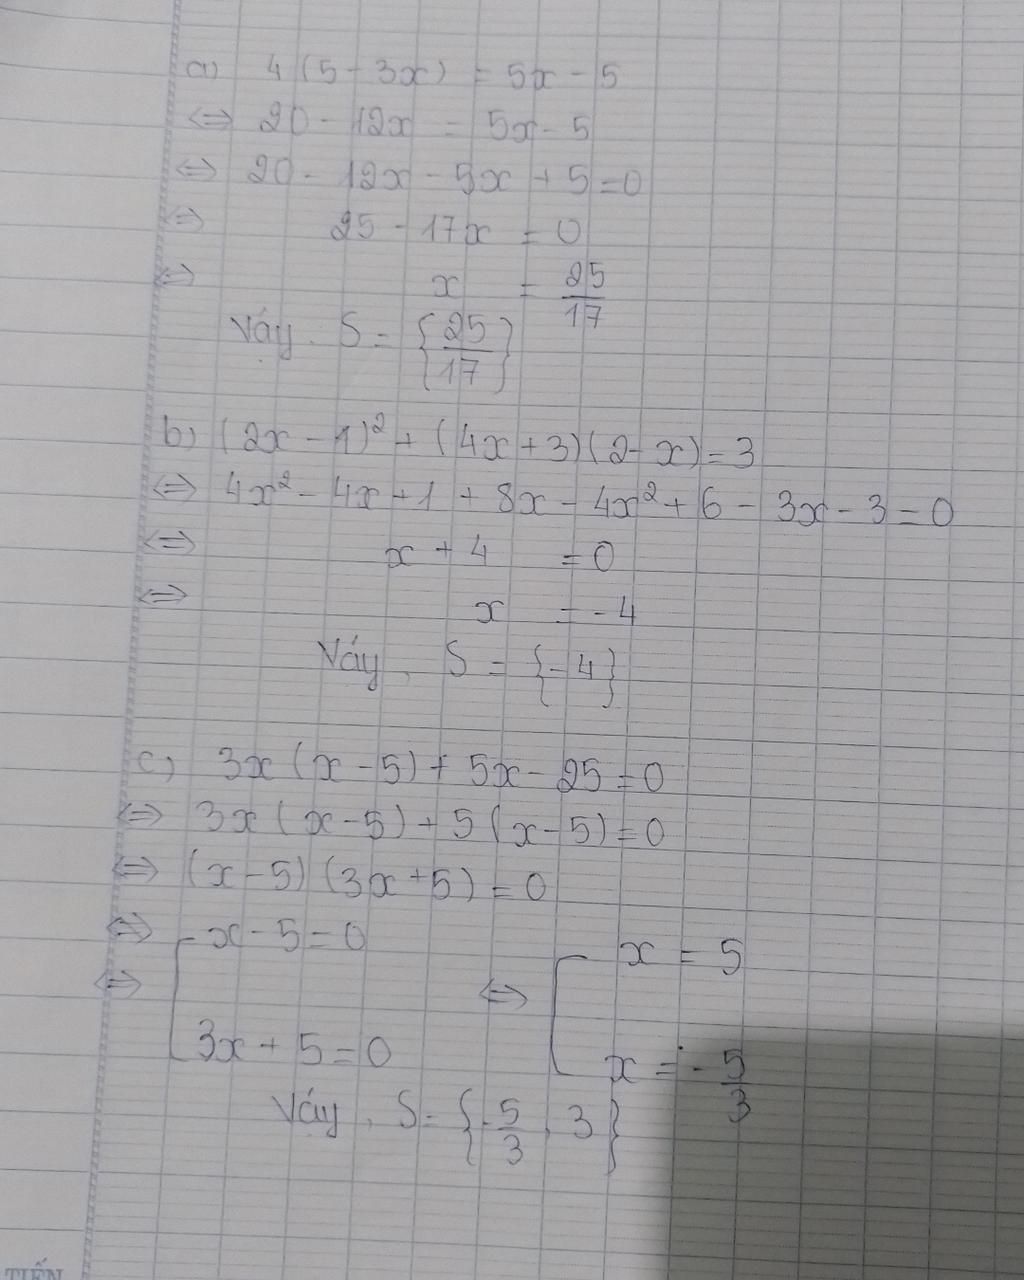 a) 4 (5 - 3x) = 5x - 5
<=> 20 - 12x = 5x - 5
<=> 20 - 12x - 5x + 5 = 0
<=> 25 - 17x = 0
<=> x = 25/17
Váy. S = {25/17}
b) (2x - 1)² + (4x + 3)(2 - x) = 3
<=> 4x² - 4x + 1 + 8x - 4x² + 6 - 3x - 3 = 0
<=> x + 4 = 0
<=> x = -4
Váy. S = {-4}
c) 3x (x - 5) + 5x - 25 = 0
<=> 3x (x - 5) + 5 (x - 5) = 0
<=> (x - 5) (3x + 5) = 0
<=> x - 5 = 0
<=> [ 3x + 5 = 0 <=> [ x = 5
x = -5/3
Váy, S = {-5/3, 3}
TIẾN